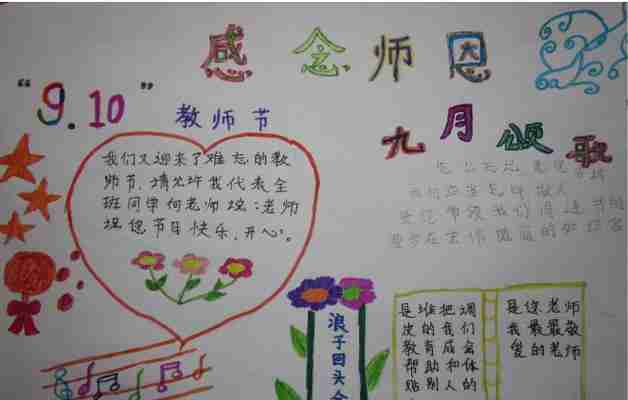 感念师恩
"9.10"
教师节
九月颂歌
我们又迎来了难忘的教
师节,请允许我代表全
班同学向老师说:老师
祝您节日快乐,开心。
浪子回头金
是谁把调
皮的我们
教育成会
帮助和体
贴别人的
是您老师
我最最敬
爱的老师